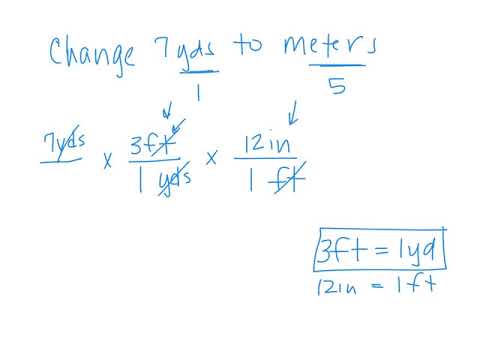 Change 7yds to meters
1 5
7yds x 3ft x 12in
1 yds 1 ft
3ft = 1yd
12in = 1ft